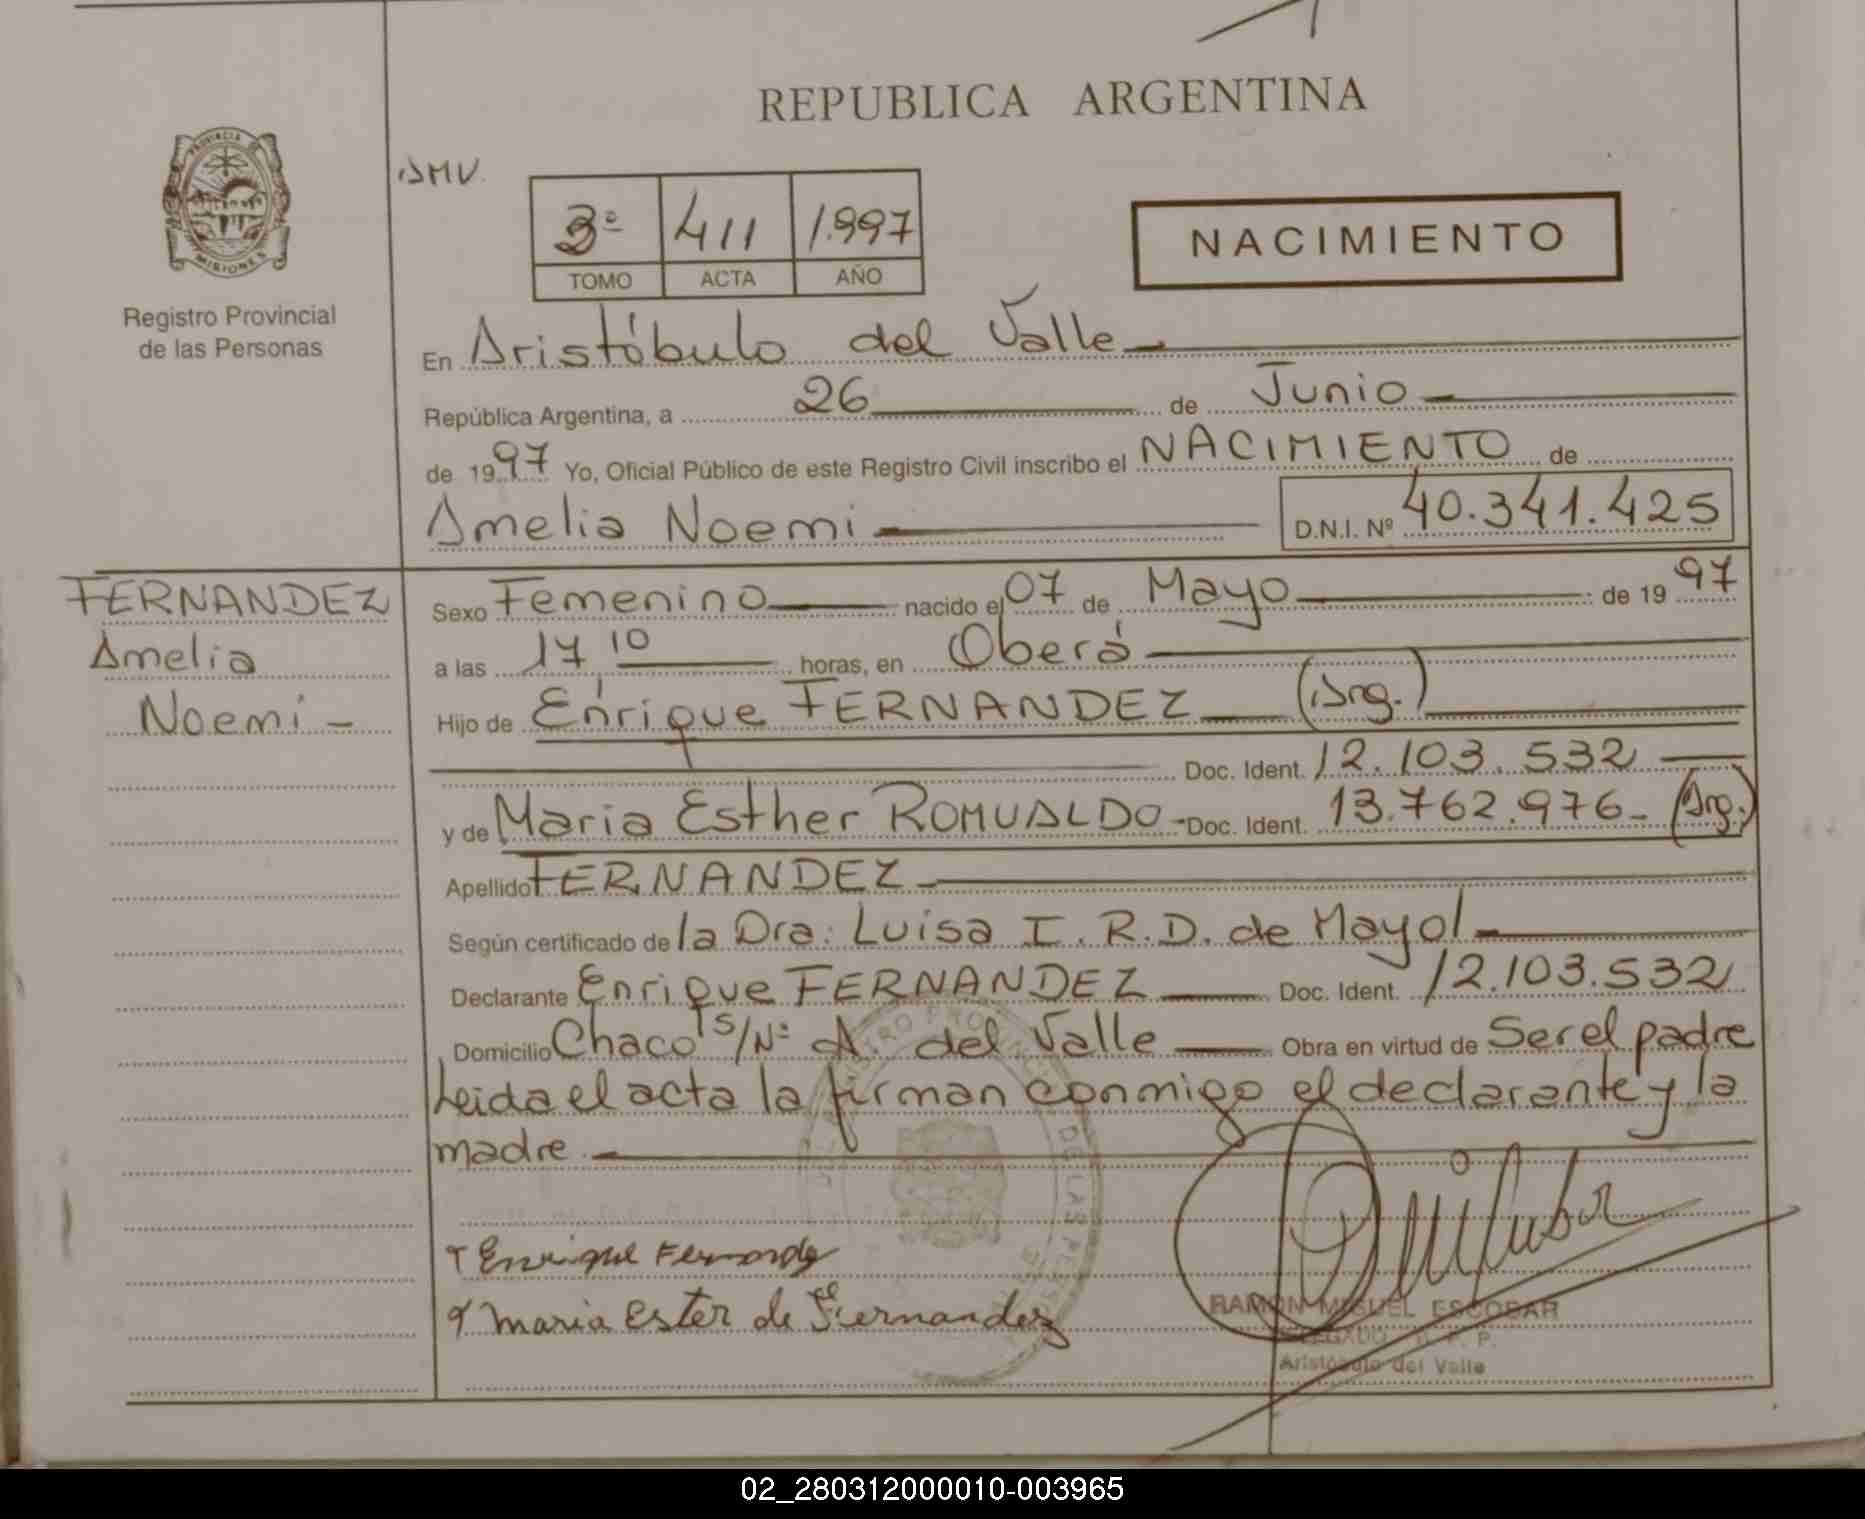 REPUBLICA ARGENTINA
PROVINCIA DE
MISIONES
Registro Provincial
de las Personas
AMV.
3º 411 1.997
TOMO ACTA AÑO
NACIMIENTO
En Aristóbulo del Valle
República Argentina, a 26 de Junio
de 1997 Yo, Oficial Público de este Registro Civil inscribo el NACIMIENTO de
Amelia Noemi D.N.I. Nº 40.341.425
FERNANDEZ
Amelia
Noemi -
Sexo Femenino nacido el 07 de Mayo de 1997
a las 17 10 horas, en Oberá
Hijo de Enrique FERNANDEZ (Arg.)
Doc. Ident. 12.103.532
y de Maria Esther ROMUALDO - Doc. Ident. 13.762.976- (Arg.)
Apellido FERNANDEZ
Según certificado de la Dra: Luisa I. R. D. de Mayol
Declarante Enrique FERNANDEZ Doc. Ident. 12.103.532
Domicilio Chaco S/Nº A. del Valle Obra en virtud de Ser el padre
Leida el acta la firman conmigo el declarante y la
madre
Enrique Fernandez
Maria Ester de Fernandez
RAMON MIGUEL ESCOBAR
Aristóbulo del Valle
02_280312000010-003965